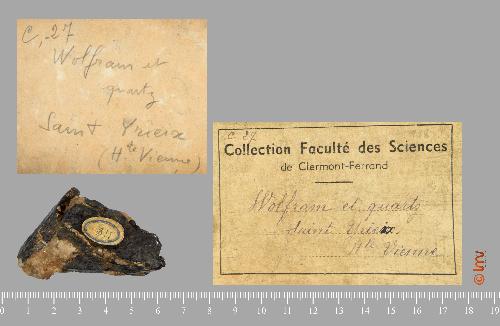 C, 27
Wolfram et
quartz
Saint Yrieix
(Hte Vienne)
C 27
Collection Faculté des Sciences
de Clermont-Ferrand
Wolfram et quartz
Saint Yrieix
Hte Vienne
© lmv
0 1 2 3 4 5 6 7 8 9 10 11 12 13 14 15 16 17 18 19